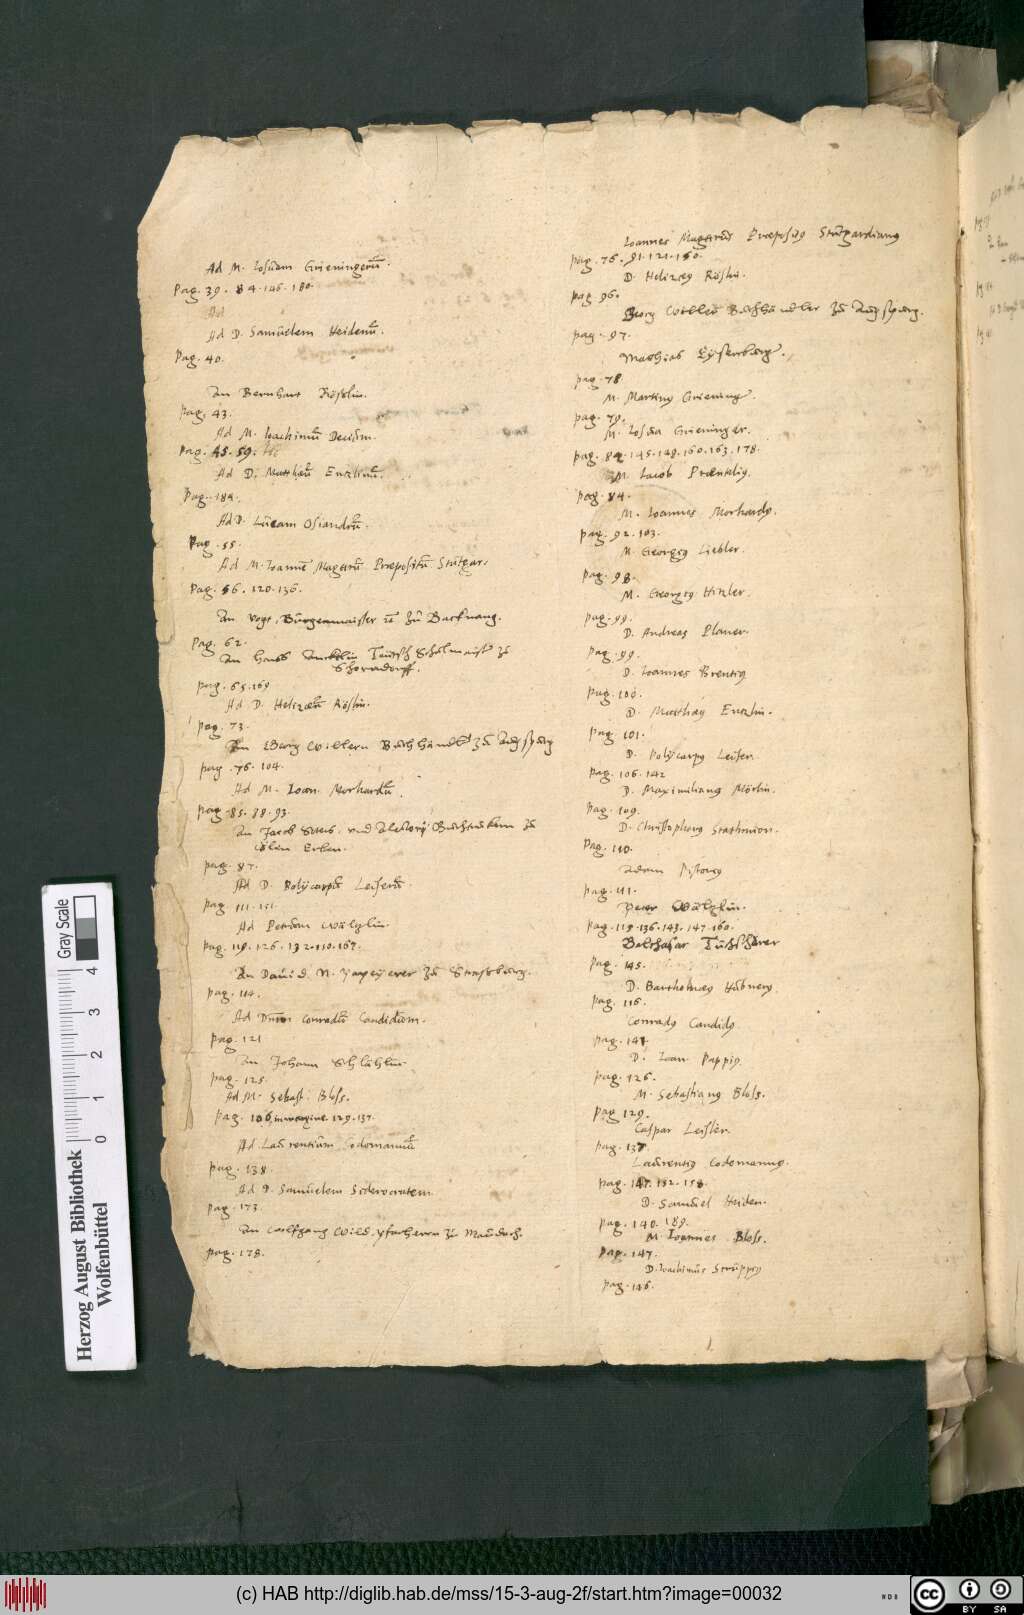 Ad M. Iosuam Grieningerū.
Pag. 39. 84. 146. 180.
Ad
Ad D. Samuelem Heidenū.
Pag. 40.
An Bernhart Rößlin.
pag. 43.
Ad M. Ioachimū
Pag. 45. 59.
Ad D. Matthæū Entzlinū.
Pag. 184.
Ad D. Lucam Osiandrū.
Pag. 55.
Ad M. Ioannē Magirū Præpositū Stutgar.
Pag. 56. 120. 136.
An Vogt, Burgermaister zu Backnang.
Pag. 62.
An Hanß Teutsch Schulmaister zu
Schorndorff.
pag. 65. 169
Ad D. Helisæū Rößlin.
pag. 73.
An Georg Willern Buchhändler zu Augspurg
pag. 76. 104.
Ad M. Ioan. Morhardū.
pag. 85. 88. 93.
An Jacob und Buchtruckern zu
Cölln Erben.
pag. 87.
Ad D. Polycarpū Leiserū.
pag. 111. 151.
Ad Petrum Wältzlin.
pag. 119. 126. 132. 110. 167.
An Dauid N. zu Strasburg.
pag. 114.
Ad Dnm Conradū Candidum.
pag. 121
An Johann Schlählin
pag. 125.
Ad M. Sebast. Bloss.
pag. 106. in margine. 129. 137.
Ad Laurentium Codomannū
pag. 138.
Ad D. Samuelem Siderocratem.
pag. 173.
An Wolfgang Wild, pfarherrn zu
pag. 178.
Ioannes Magirus Præpositus Stutgardianus
pag. 76. 91. 121. 150.
D. Helisæus Röslin.
pag. 96.
Georg Willer Buchhändler zu Augspurg.
pag. 97.
Mathias Eysenberg.
pag. 78
M. Martinus Griening.
pag. 79.
M. Iosua Grieninger.
pag. 82. 145. 148. 160. 163. 178.
M. Iacob
pag. 84.
M. Ioannes Morhardus.
pag. 92. 103.
M. Georgius Liebler.
pag. 98.
M. Georgius Hitzler.
pag. 99.
D. Andreas Planer.
pag. 99.
D. Ioannes Brentius
pag. 100.
D. Matthæus Entzlin.
pag. 101.
D. Polycarpus Leiser.
pag. 106. 142
D. Maximilianus Mörlin.
pag. 109.
D. Christophorus Stathmion.
pag. 110.
Adam Pistorius
pag. 111.
Peter Wältzlin.
pag. 119. 136. 143. 147. 160.
Balthasar Tuchscherer
pag. 145.
D. Bartholmæus Hübnerus.
pag. 116.
Conradus Candidus.
pag. 141
D. Ioan. Pappus.
pag. 126.
M. Sebastianus Bloss.
pag. 129.
Caspar Leisler.
pag. 137.
Laurentius Codomannus.
pag. 147. 152. 158.
D. Samuel Heiden.
pag. 140. 189.
M. Ioannes Bloss.
pag. 147.
D. Ioachimus Struppius
pag. 146.
Herzog August Bibliothek
Wolfenbüttel
Gray Scale
0 1 2 3 4
(c) HAB http://diglib.hab.de/mss/15-3-aug-2f/start.htm?image=00032
cc BY SA